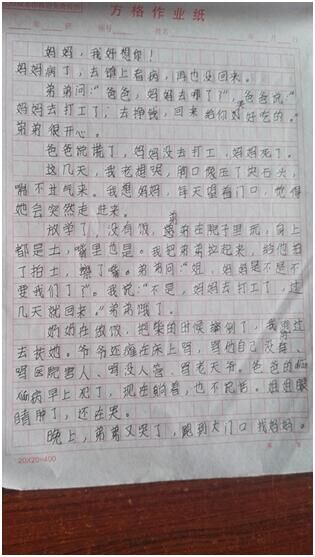 方格作业纸
妈妈，我好想你！
妈妈病了，去镇上看病，再也没回来。
弟弟问：“爸爸，妈妈去哪了？”，爸爸说：“
妈妈去打工了；去挣钱，回来给你买好吃的。”
弟弟很开心。
爸爸说谎了，妈妈没去打工，妈妈死了。
这几天，我老想哭，胸口像压了块石头，
喘不过气来。我想妈妈，每天望着门口，觉得
她会突然走进来。
放学了，没有饭，弟弟在院子里玩，身上
都是土，嘴里也是。我把弟弟拉起来，给他拍
了拍土，擦了嘴。弟弟问：“姐，妈妈是不是不
要我们了？”我说：“不是，妈妈去打工了，过
几天就回来。”弟弟饿了。
奶奶在做饭，把柴的时候摔倒了，我跑过
去扶她。爷爷还瘫在床上骂，骂他自己没用、
骂医院害人、骂没人管、骂老天爷。爸爸的
病早上犯了，现在躺着，也不说话。姐姐眼
睛肿了，还在哭。
晚上，弟弟又哭了，跑到大门口找妈妈。
20X20=400